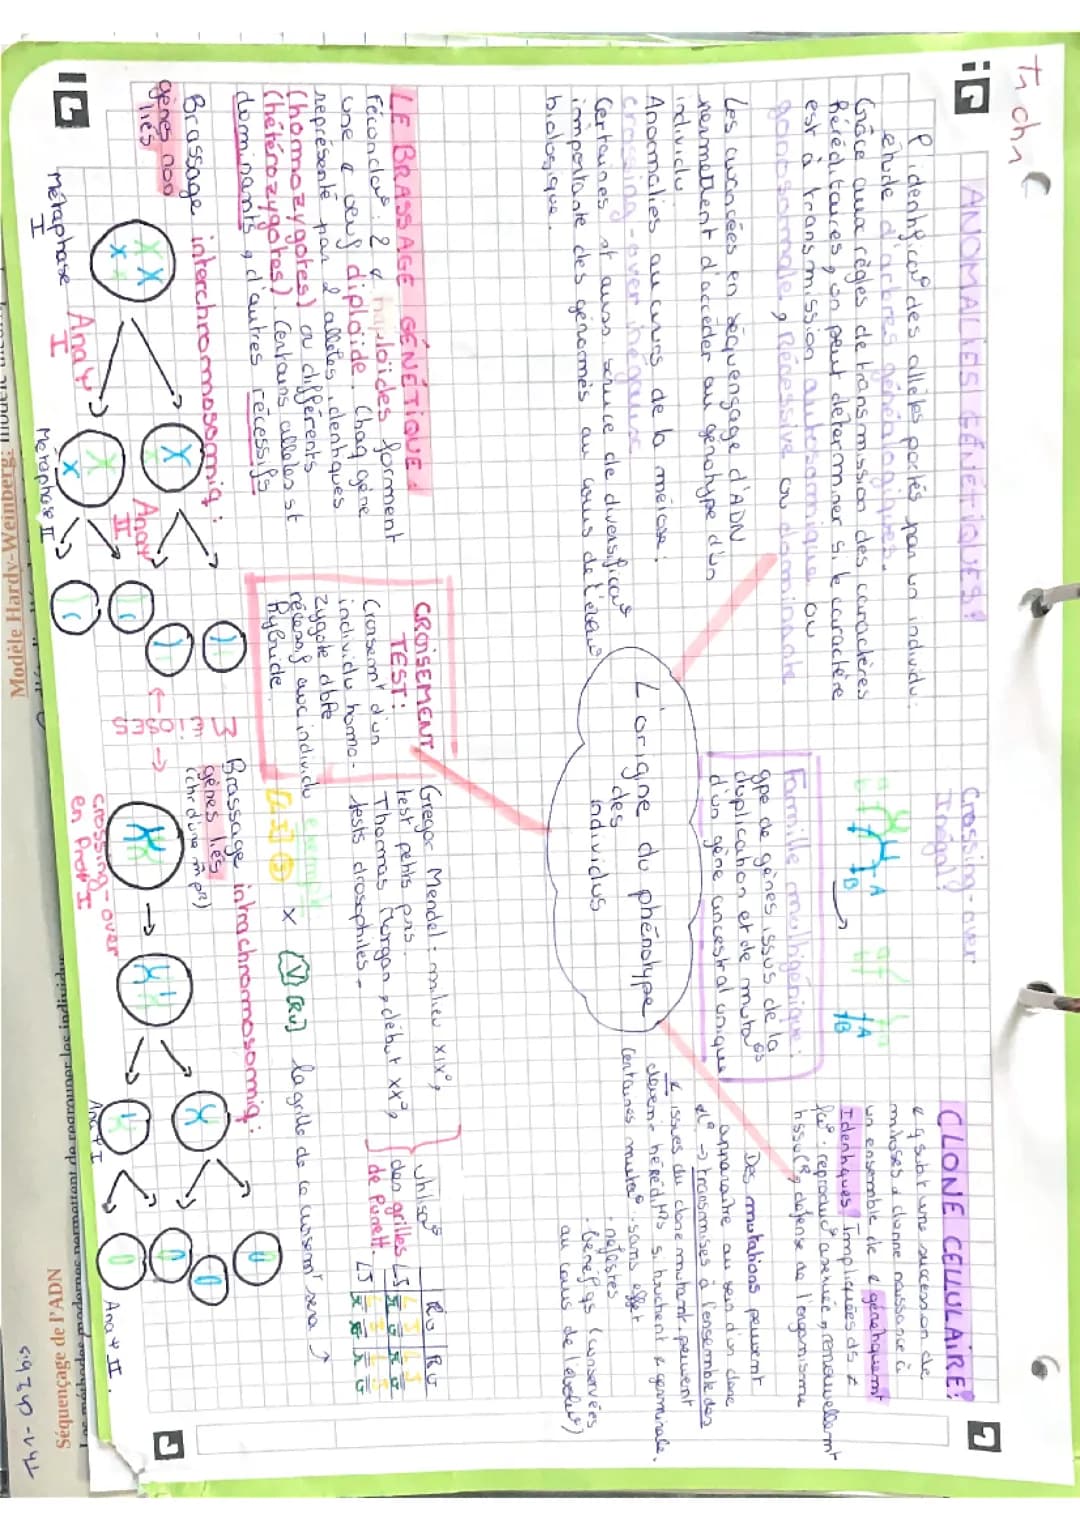 Th 1 ch 1
ANOMALIES GÉNÉTIQUES:
l'identifica° des allèles portés par un individu:
étude d'arbres généalogiques.
Grâce aux règles de transmission des caractères
héréditaires, on peut déterminer si le caractère
est à transmission autosomique ou
gonosomale, Récessive ou dominante
Les avancées en séquençage d'ADN
permettent d'accéder au génotype d'un
individu
Anormalies au cours de la méiose:
crossing-over inégaux
Certaines st aussi source de diversifica°
importante des génomes au cours de l'évolu°
biologique.
Crossing-over
Inégal:
A
B
A
B
Famille multigénique:
gpe de gènes issus de la
duplication et de muta°s
d'un gène ancestral unique
CLONE CELLULAIRE:
¢ q subit une succession de
mitoses & donne naissance à
un ensemble de ¢ génétiquemt
Identiques. Impliquées ds ≠
fc°: reproduc° asexuée, renouvellemt
tissu(R), défense de l'organisme
Des mutations peuvent
apparaître au sein d'un clone
→ transmises à l'ensemble des
¢ issues du clone mutant peuvent
devenir hérédit™s si touchent ¢ germinale.
Certaines muta°: - sans effet
- néfastes
- bénéfqs (conservées
au cours de l'évolu°)
L'origine du phénotype
des
individus
LE BRASSAGE GÉNÉTIQUE:
Féconda°: 2 ¢ haploïdes forment
une ¢ oeuf diploïde. Chaq gène
représenté par 2 allèles identiques
(homozygotes) ou différents
(hétérozygotes). Certains allèles st
dominants, d'autres récessifs
CROISEMENT
TEST:
Croisemt d'un
individu homo-
zygote dble
récessif avec individu
hybride.
Gregor Mendel: milieu XIX°,
test petits pois.
Thomas Morgan, début XX°,
tests drosophiles.
utilisa°
des grilles
de Punett.
exemple
X
la grille de ce croisemt sera
Brassage interchromosomiq:
gènes non
liés
Métaphase
I
Ana φ
I
Métaphase II
Ana φ
II
← MÉIOSES →
Brassage intrachromosomiq:
gènes liés
(chr d'une m̂ pR)
crossing-over
en Proφ I
Ana φ I
Ana φ II.
Modèle Hardy-Weinberg: modèle
Th 1 - ch 2 bis
Séquençage de l'ADN
Les méthodes modernes permettent de regrouper les individus